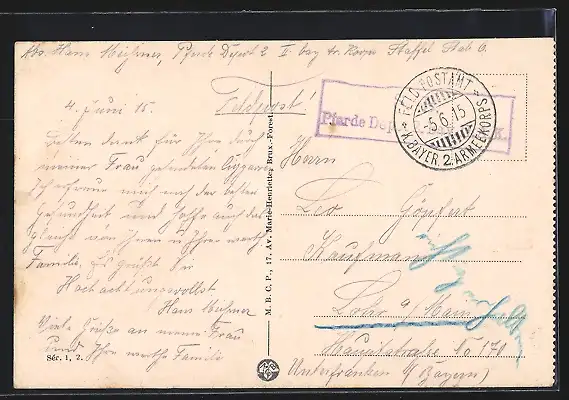 Abs. Hans Meißner, Pferde Depot 2 II. bay. tr. Korps Staffel Stab 6.
4. Juni 15.
Feldpost!
Besten Dank für Ihre durch
meiner Frau gesendeten Cigarren
Ich erfreue mich noch der besten
Gesundheit und hoffe auch das
gleiche von Ihnen u. Ihrer werth.
Familie. Es grüßt Sie
Hochachtungsvollst
Hans Meißner
Viele Grüße an meine Frau
und Ihre werthe Familie
Sér. 1, 2.
M. B. C. P., 17, Av. Marie-Henriette, Brux.-Forest
Pferde Dep
FELD-POSTAMT
-5.6.15
K.BAYER. 2. ARMEEKORPS
Herrn
Leo Göpfert
Kaufmann
Lohr a/Main
Hauptstraße No 170
Unterfranken (Bayern)